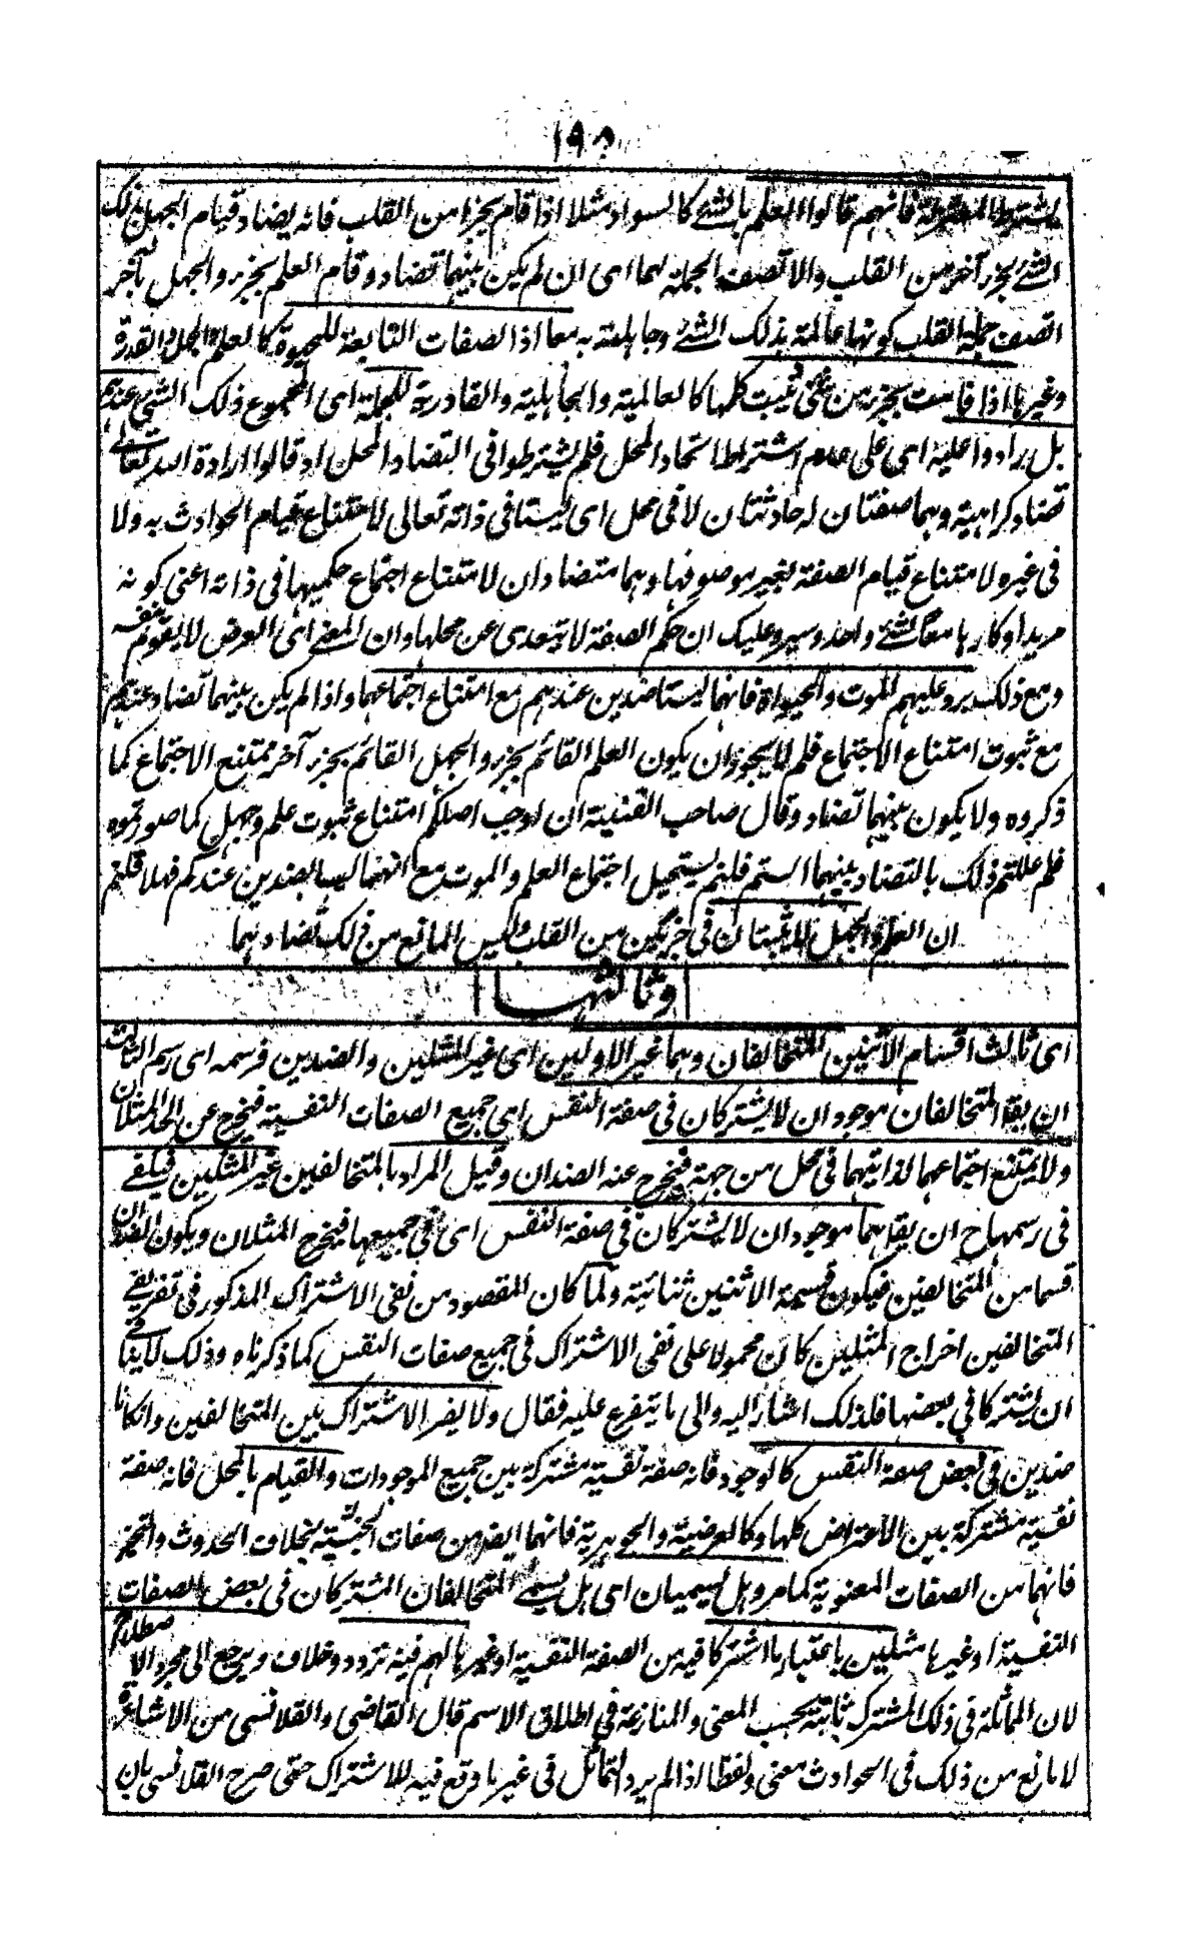 ١٩٥
يشترط المعتزلة فانهم قالوا العلم بالشئ كالسواد مثلا اذا قام بجزء من القلب فانه يضاد قيام الجهل بذلك
الشئ بجزء آخر من القلب والا اتصف الجملة بهما اى ان لم يكن بينهما تضاد وقام العلم بجزء والجهل بآخر
اتصف جملة القلب كونها عالمة بذلك الشئ وجاهلة به معا اذ الصفات التابعة للحيوة كالعلم والجهل والقدرة
وغيرها اذا قامت بجزء من شئ ثبت حكمها كالعالمية والجاهلية والقادرية للجملة اى المجموع ذلك الشئ عندهم
بل زادوا عليه اى على عدم اشتراط اتحاد المحل فلم يشترطوا فى التضاد المحل اذ قالوا ارادة الله تعالى
تضاد كراهيته وهما صفتان له حادثتان لا فى محل اى ليستا فى ذاته تعالى لامتناع قيام الحوادث به ولا
فى غيره لامتناع قيام الصفة بغير موصوفها وهما متضادان لامتناع اجتماع حكميهما فى ذاته اعنى كونه
مريدا وكارها معا لشئ واحد وسيرد عليك ان حكم الصفة لا يتعدى عن محلها وان المعنى اى العرض لا يقوم بنفسه
ومع ذلك يرد عليهم الموت والحيوة فانهما ليستا ضدين عندهم مع امتناع اجتماعهما واذا لم يكن بينهما تضاد عندهم
مع ثبوت امتناع الاجتماع فلم لا يجوز ان يكون العلم القائم بجزء والجهل القائم بجزء آخر ممتنع الاجتماع كما
ذكروه ولا يكون بينهما تضاد وقال صاحب القنية ان اوجب اصلكم امتناع ثبوت علم وجهل كما صورتموه
فلم عللتم ذلك بالتضاد بينهما الستم قلتم يستحيل اجتماع العلم والموت مع انهما ليسا بضدين عندكم فهلا قلتم
ان العلم والجهل لا يثبتان فى جزئين من القلب وليس المانع من ذلك تضادهما
وثالثها
اى ثالث اقسام الاثنين المتخالفان وهما غير الاولين اى غير المثلين والضدين فرسمه اى رسم الثالث
ان يقال المتخالفان موجودان لا يشتركان فى صفة النفس اى جميع الصفات النفسية فيخرج عن الحد المثلان
ولا يمتنع اجتماعهما لذاتيهما فى محل من جهة فيخرج عنه الضدان وقيل المراد بالمتخالفين غير المثلين فيكفى
فى رسمهما ح ان يقال هما موجودان لا يشتركان فى صفة النفس اى فى جميعها فيخرج المثلان ويكون الضدان
قسما من المتخالفين فيكون قسمة الاثنين ثنائية ولما كان المقصود من نفى الاشتراك المذكور فى تعريفى
المتخالفين اخراج المثلين كان محمولا على نفى الاشتراك فى جميع صفات النفس كما ذكرناه وذلك لا ينافى
ان يشتركا فى بعضها فلذلك اشار اليه والى ما يتفرع عليه فقال ولا يضر الاشتراك بين المتخالفين وان كانا
ضدين فى بعض صفة النفس كالوجود فانه صفة نفسية مشتركة بين جميع الموجودات والقيام بالمحل فانه صفة
نفسية مشتركة بين الاعراض كلها وكالعرضية والجوهرية فانهما ايضا من صفات الجنسية بخلاف الحدوث والتحيز
فانهما من الصفات المعنوية كما مر وهل يسميان اى هل يسمى المتخالفان المشتركان فى بعض الصفات
النفسية او غيرها مثلين باعتبار ما اشتركا فيه من الصفة النفسية او غيرها لهم فيه تردد وخلاف ويرجع الى مجرد الاصطلاح
لان المماثلة فى ذلك المشترك ثابتة بحسب المعنى والمنازعة فى اطلاق الاسم قال القاضى والقلانسى من الاشاعرة
لا مانع من ذلك فى الحوادث معنى ولفظا اذ لم يرد التماثل فى غير ما وقع فيه للاشتراك حتى صرح القلانسى بان